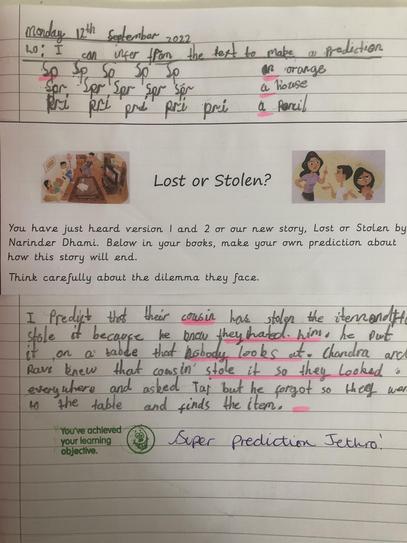 Monday 12th September 2022
Lo: I can infer from the text to make a prediction
Sp Sp Sp Sp Sp an orange
Spr Spr Spr Spr Spr a house
pri pri pri pri pri a Pencil
Lost or Stolen?
You have just heard version 1 and 2 or our new story, Lost or Stolen by
Narinder Dhami. Below in your books, make your own prediction about
how this story will end.
Think carefully about the dilemma they face.
I Predict that their cousin has stolen the item and
stole it because he knew they hated him. he put
it on a table that nobody looks at. Chandra and
Ravi knew that cousin stole it so they looked
everywhere and asked Taj but he forgot so they
to the table and finds the item.
You've achieved
your learning
objective.
Super prediction Jethro!